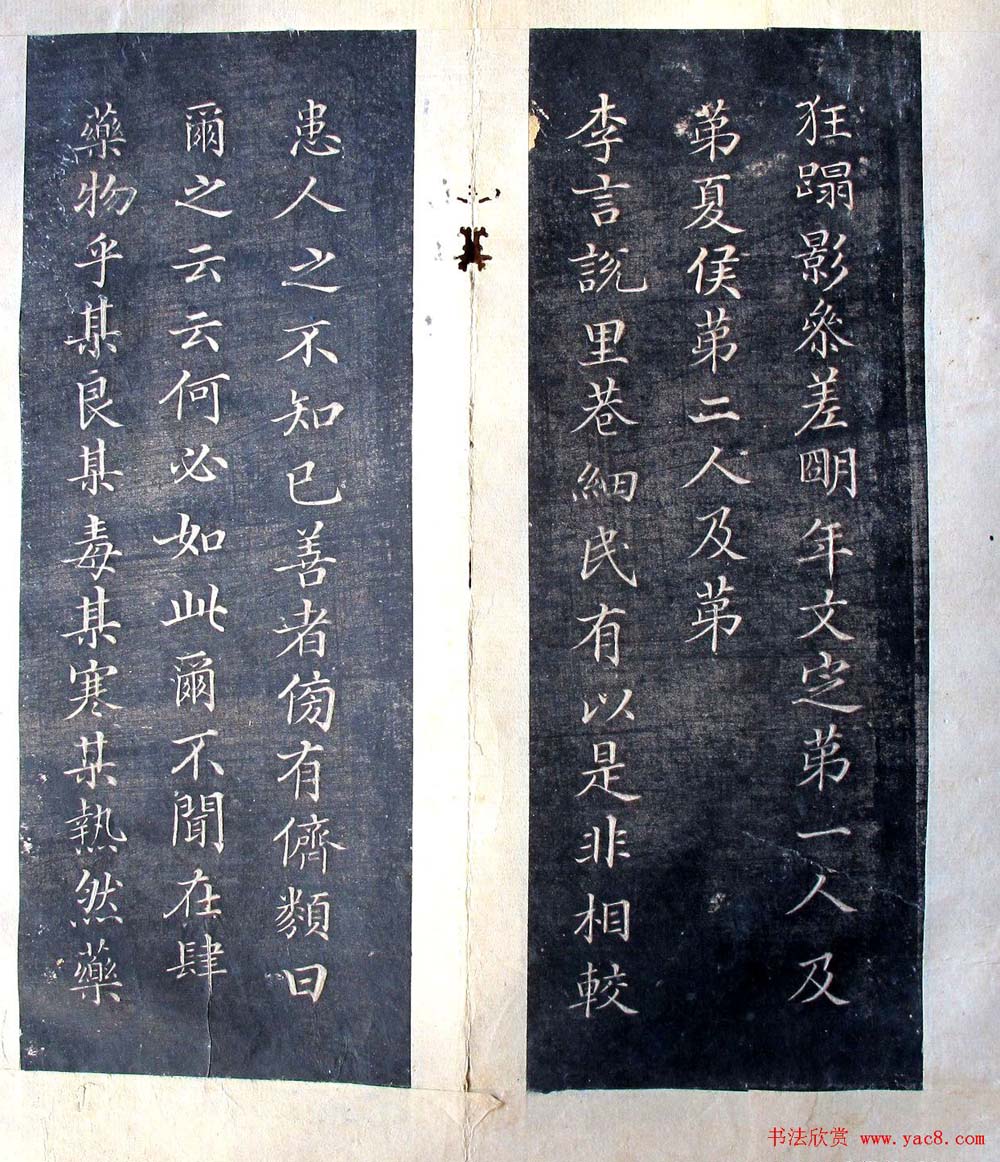 狂蹋影叅差朙年文定苐一人及
苐夏侯苐二人及苐
李言說里巷細民有以是非相較
患人之不知已善者傍有儕類曰
爾之云云何必如此爾不聞在肆
藥物乎某良某毒某寒某熱然藥
书法欣赏 www.yac8.com